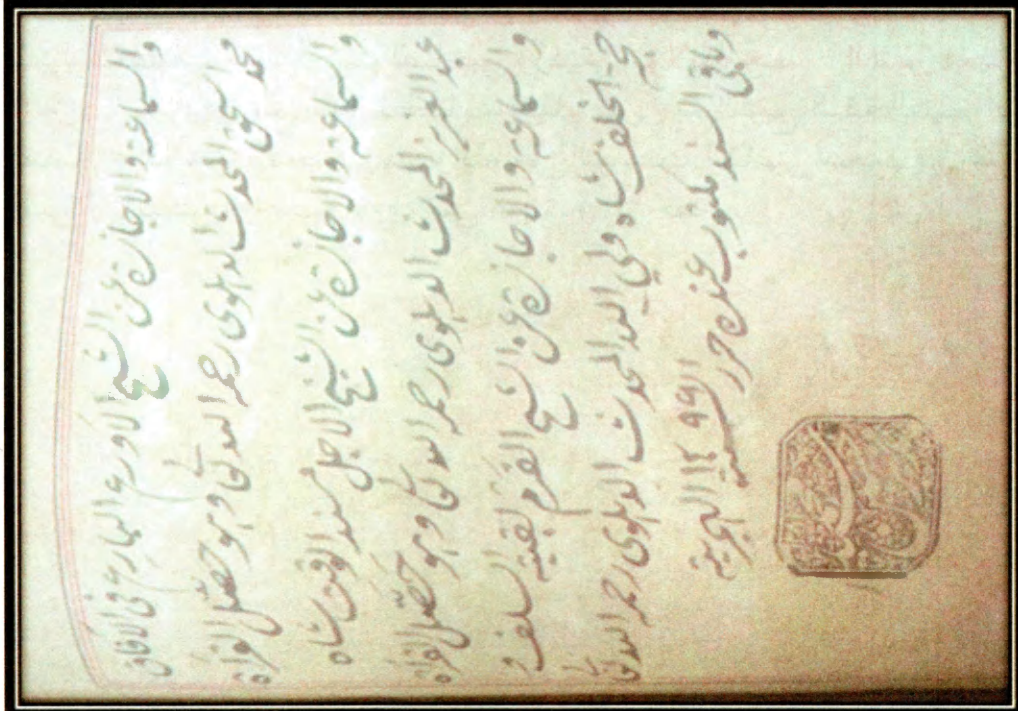 والسماعة والاجازة عن الشيخ الاورع البارع فى الافاق
محمد اسحق المحدث الدهلوى رحمه الله تعالى وهو حصّل القراءة
والسماعة والاجازة عن الشيخ الاجل مسند الوقت شاه
عبد العزيز المحدث الدهلوى رحمه الله تعالى وهو حصّل القراءة
والسماعة والاجازة عن الشيخ القرم بقية السلف و
حجة الخلف شاه ولى الله المحدث الدهلوى رحمه الله تعالى
وباقى السند مكتوب عنده حرر الهجرية